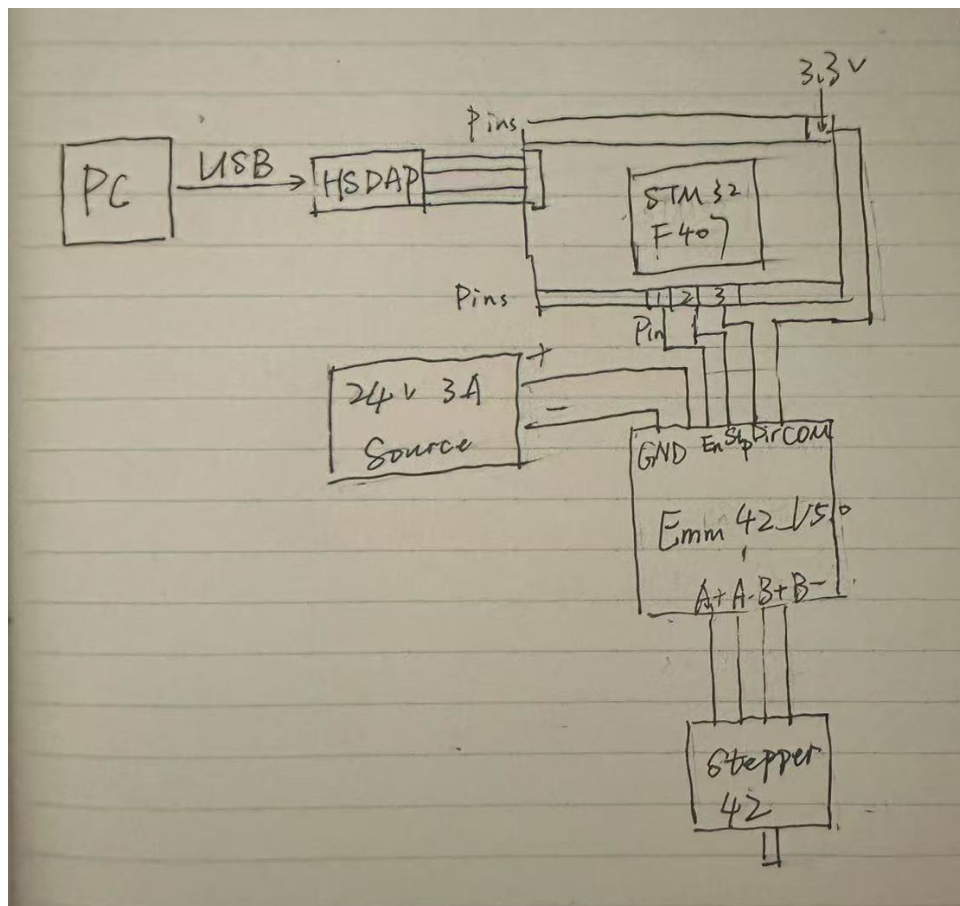 3.3 V
Pins
PC
USB
HSDAP
STM32
F407
Pins
1 2 3
Pin
+
24V 3A
Source
-
GND En Stp Dir COM
Emm 42_V5.0
A+ A- B+ B-
Stepper
42